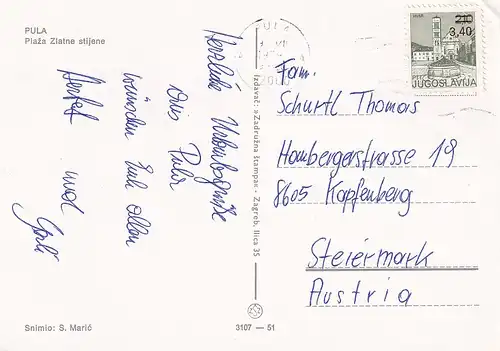 PULA
Plaža Zlatne stijene
Herzliche Urlaubsgrüße
aus Pula
wünschen Euch allen
und
Gerli
Izdavač: »Zadružna štampa« - Zagreb, Ilica 35
PULA
2.10
3,40
JUGOSLAVIJA
Fam.
Schurtl Thomas
Hombergerstrasse 19
8605 Kapfenberg
Steiermark
Austria
Snimio: S. Marić
3107 — 51